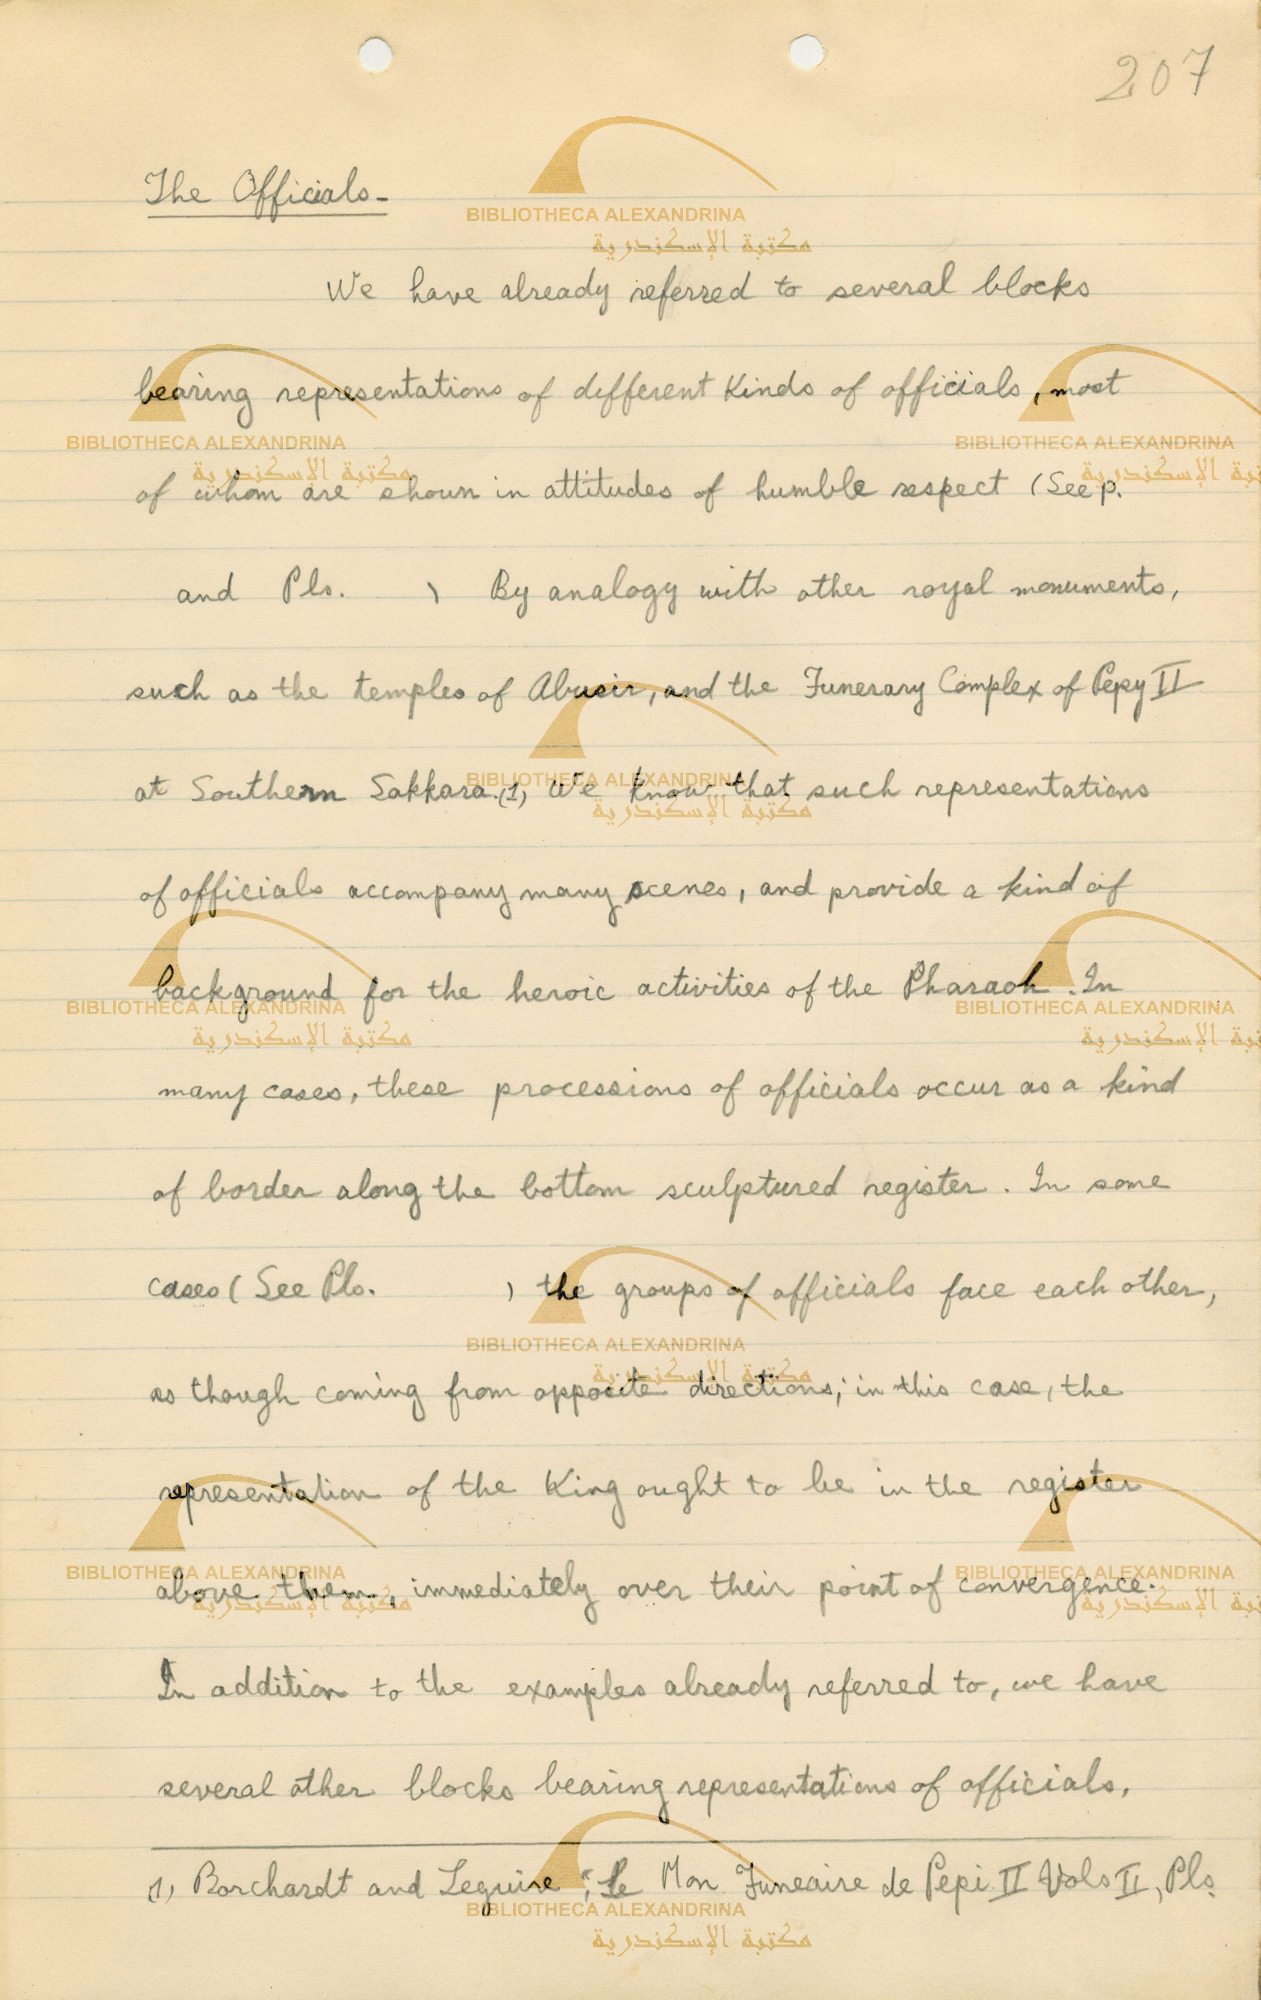 207
The Officials-
We have already referred to several blocks
bearing representations of different Kinds of officials, most
of whom are shown in attitudes of humble respect (See p.
and Pls. ) By analogy with other royal monuments,
such as the temples of Abusir, and the Funerary Complex of Pepy II
at Southern Sakkara.(1) We Know that such representations
of officials accompany many scenes, and provide a kind of
background for the heroic activities of the Pharaoh. In
many cases, these processions of officials occur as a kind
of border along the bottom sculptured register. In some
cases (See Pls. ) the groups of officials face each other,
as though coming from opposite directions; in this case, the
representation of the King ought to be in the register
above them, immediately over their point of convergence.
In addition to the examples already referred to, we have
several other blocks bearing representations of officials.
(1) Borchardt and Lequire ; "Le Mon Funeaire de Pepi II Vols II, Pls.
BIBLIOTHECA ALEXANDRINA
مكتبة الإسكندرية